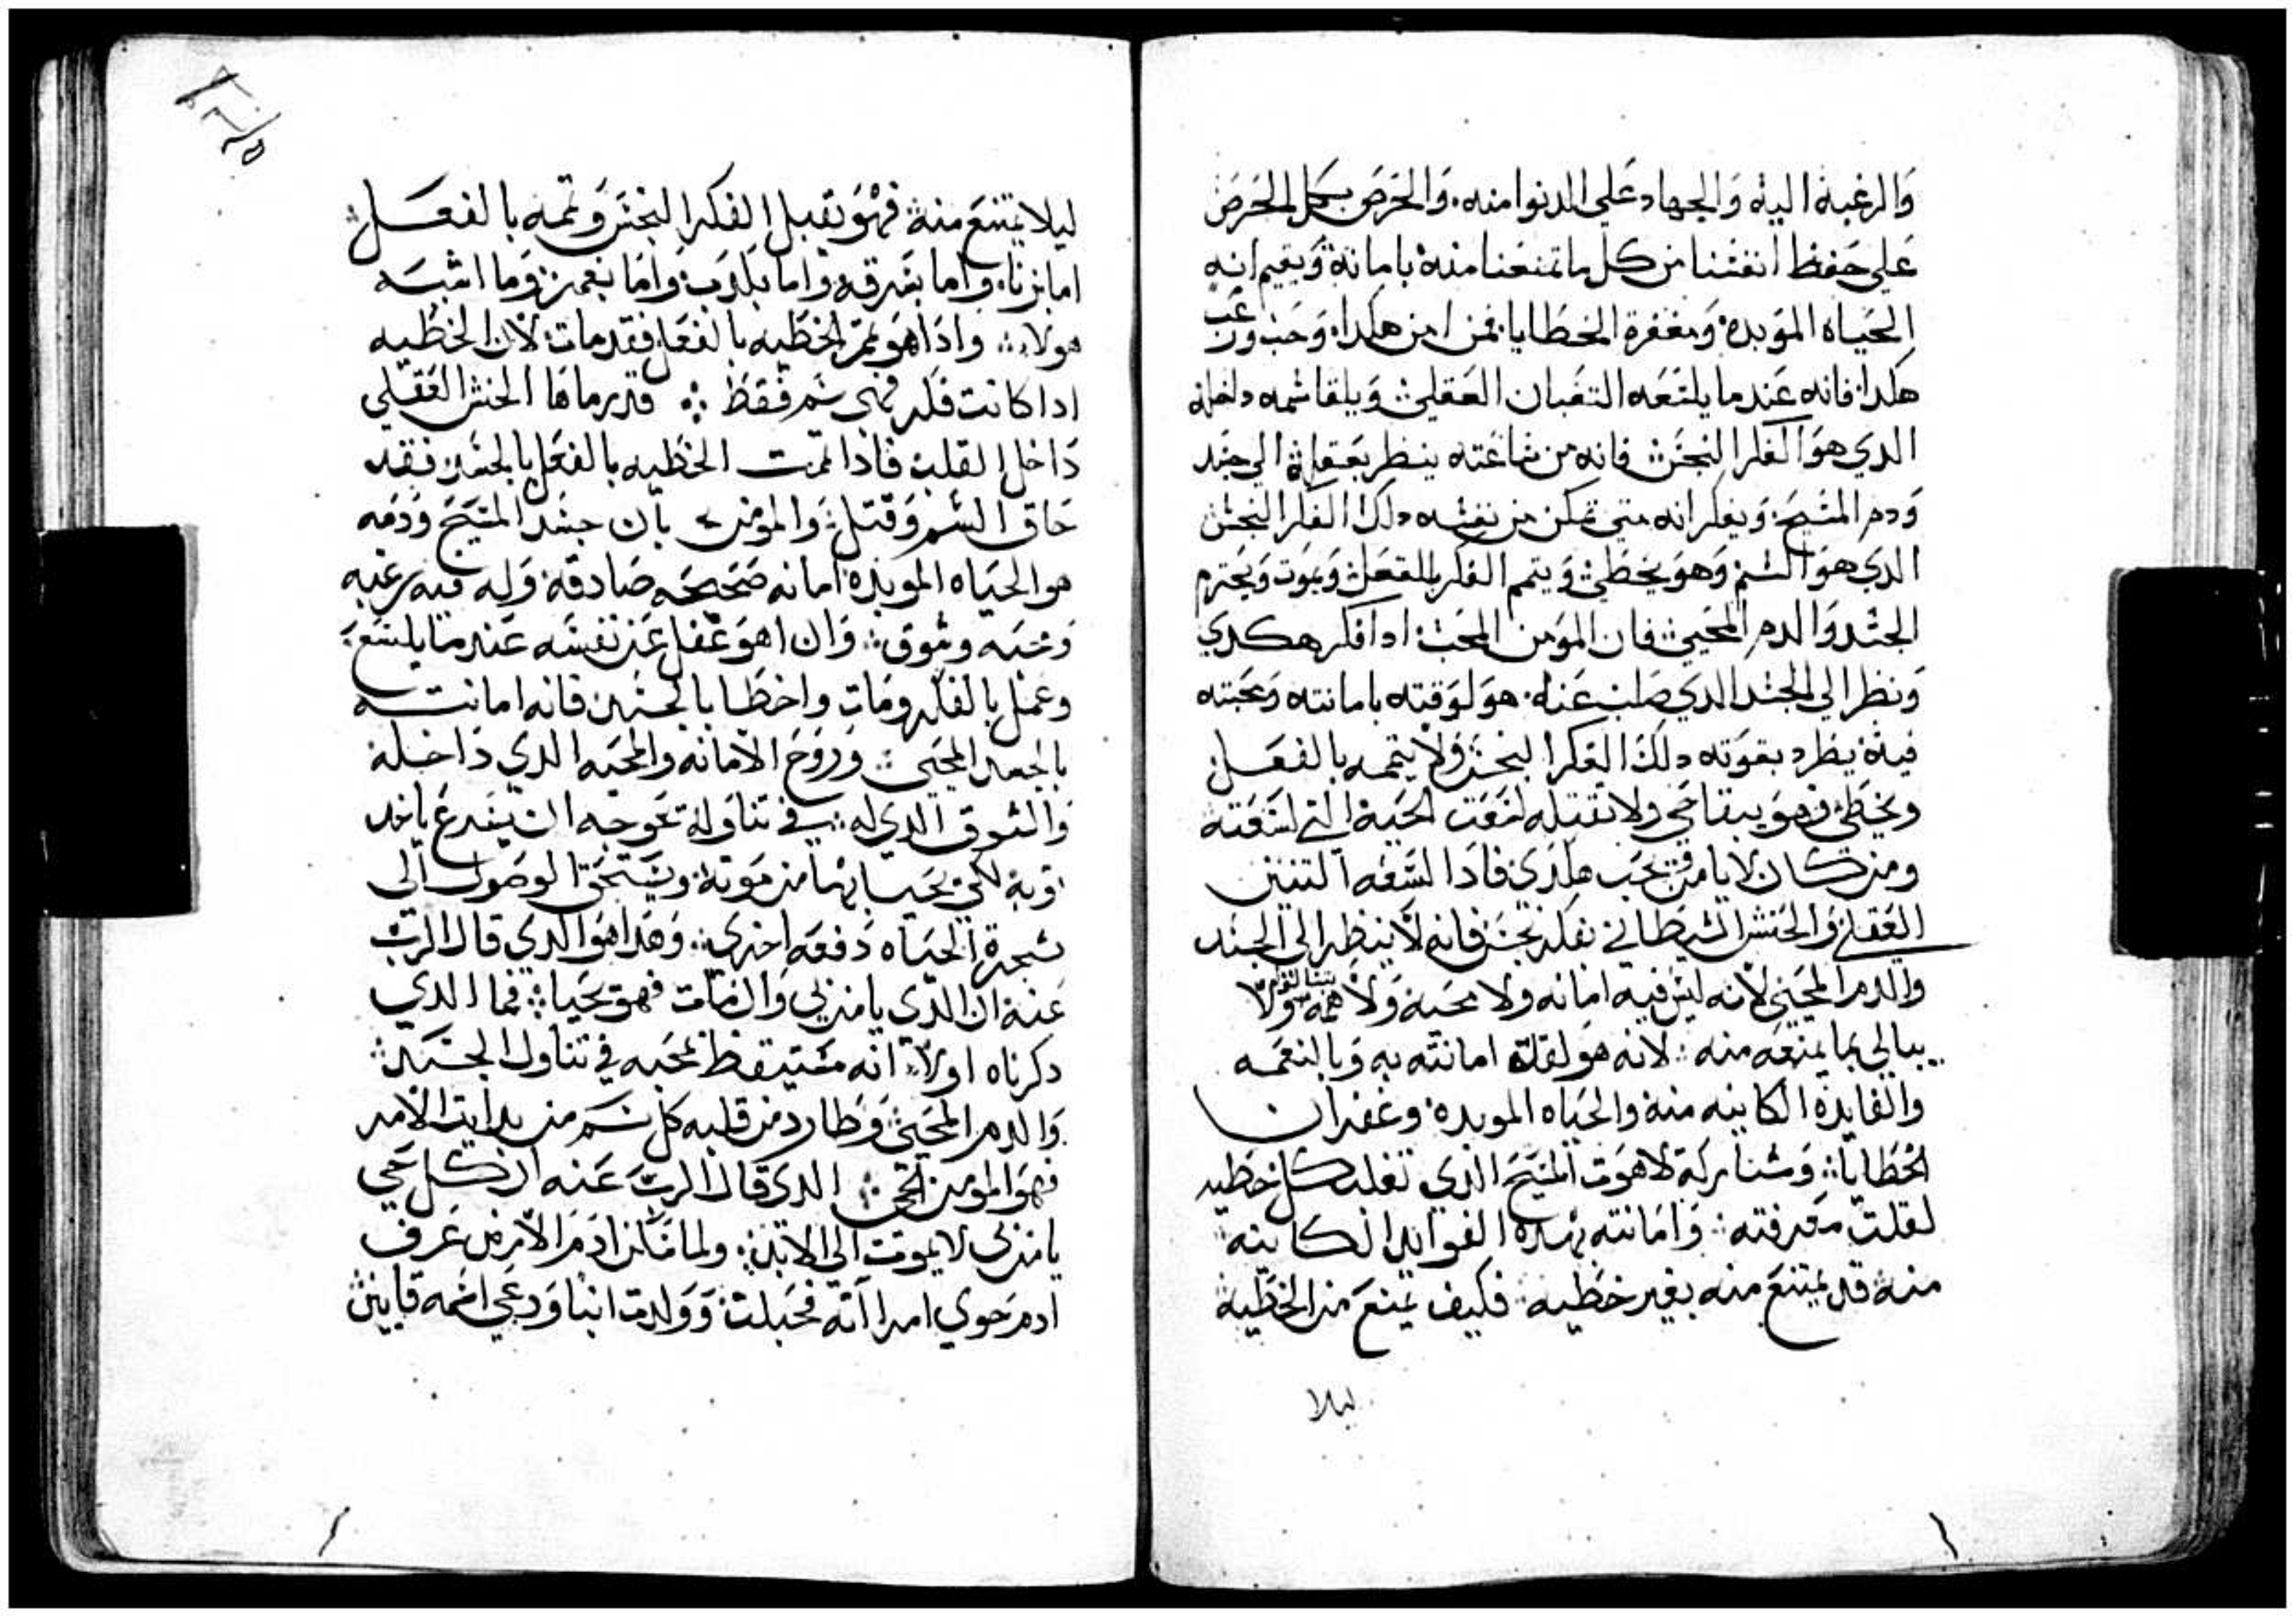 والرغبه اليه والجهاد علي الدنوا منه. والحرص بكل الحرص
علي حفظ انفسنا من كل ما تمنعنا منه بامانة ويقيم انه
الحياه الموبده ومغفرة الخطايا. فمن امن هكدا. وحب ورغب
هكدا. فانه عند ما يلسعه التعبان العقلي ويلقا سمه داخله
الدي هو الفكر النجس فانه من ساعته ينظر بعقله الي جسد
ودم المسيح. ويفكر انه متي تمكن من نفسه دلك الفكر النجس
الدي هو السم وهو يخطي ويتمم الفكر بالفعل ويموت ويحترم
الجسد والدم المحيي فان المومن المحب ادا فكر هكدي
ونظر الي الجسد الدي صلب عنه. هو لوقته بامانته ومحبته
فيه يطرد بقوته دلك الفكر النجس ولا يتممه بالفعل
ويخطي فهو يبقا حي ولا تقتله لسعت الحيه التي لسعته
ومن كان لا يامن يحب هكدي فادا لسعه التنين
العقلي والحنش الشيطاني بفكر نجس فانه لا ينظر الي الجسد
والدم المحيي لانه ليس فيه امانه ولا محبه ولا همه ولا
يبالي بما يمنعه منه. لانه هو لقلة امانته به وبالنعمه
والفايدة الكاينه منه والحياه الموبده وغفران
الخطايا. ومشاركة لاهوت المسيح الذي تغلب كل خطيه
لقلت معرفته. وامانته بهده الفوايد الكاينه
منه قد يمتنع منه بغير خطيه. فكيف يمنع من الخطيه
ليلا
ليلا يمتنع منه فهو يقبل الفكر النجس ويتممه بالفعل
اما بزنا. واما بسرقه واما بكدب واما بغمز وما اشبه
هولاء. وادا هو تمم الخطيه بالفعل فقد مات. لان الخطيه
ادا كانت فكر فهي سم فقط قد رماها الحنش العقلي
داخل القلب فاذا تمت الخطيه بالفعل بالجسد فقد
حاق السم وقتل. والمومن بان جسد المسيح ودمه
هو الحياه الموبده امانه صحيحه صادقه. وله فيه رغبه
ومحبه وشوق. وان اهو غفل عن نفسه عند ما يلسع
وعمل بالفكر ومات واخطا بالجسد فانه امانته
بالجسد المحيي وروح الامانه والمحبه الدي داخله
والشوق الدي له في تناوله تحوجه ان يسرع ياخد
توبة لكي يحيا بها من موته. ويستحق الوصول الي
شجرة الحياه دفعه اخري. وهدا هو الدي قال الرب
عنه ان الدي يامن بي وان مات فهو يحيا. فما الدي
دكرناه اولا. انه مستيقظ بمحبه في تناول الجسد
والدم المحيي وطارد من قلبه كل سم من بدايت الامر
فهو المومن الحي الدي قال الرب عنه ان كل حي
يامن بي لا يموت الي الابد. ولما سكن ادم الارض عرف
ادم حوي امراته فحبلت وولدت ابنا ودعي اسمه قايين